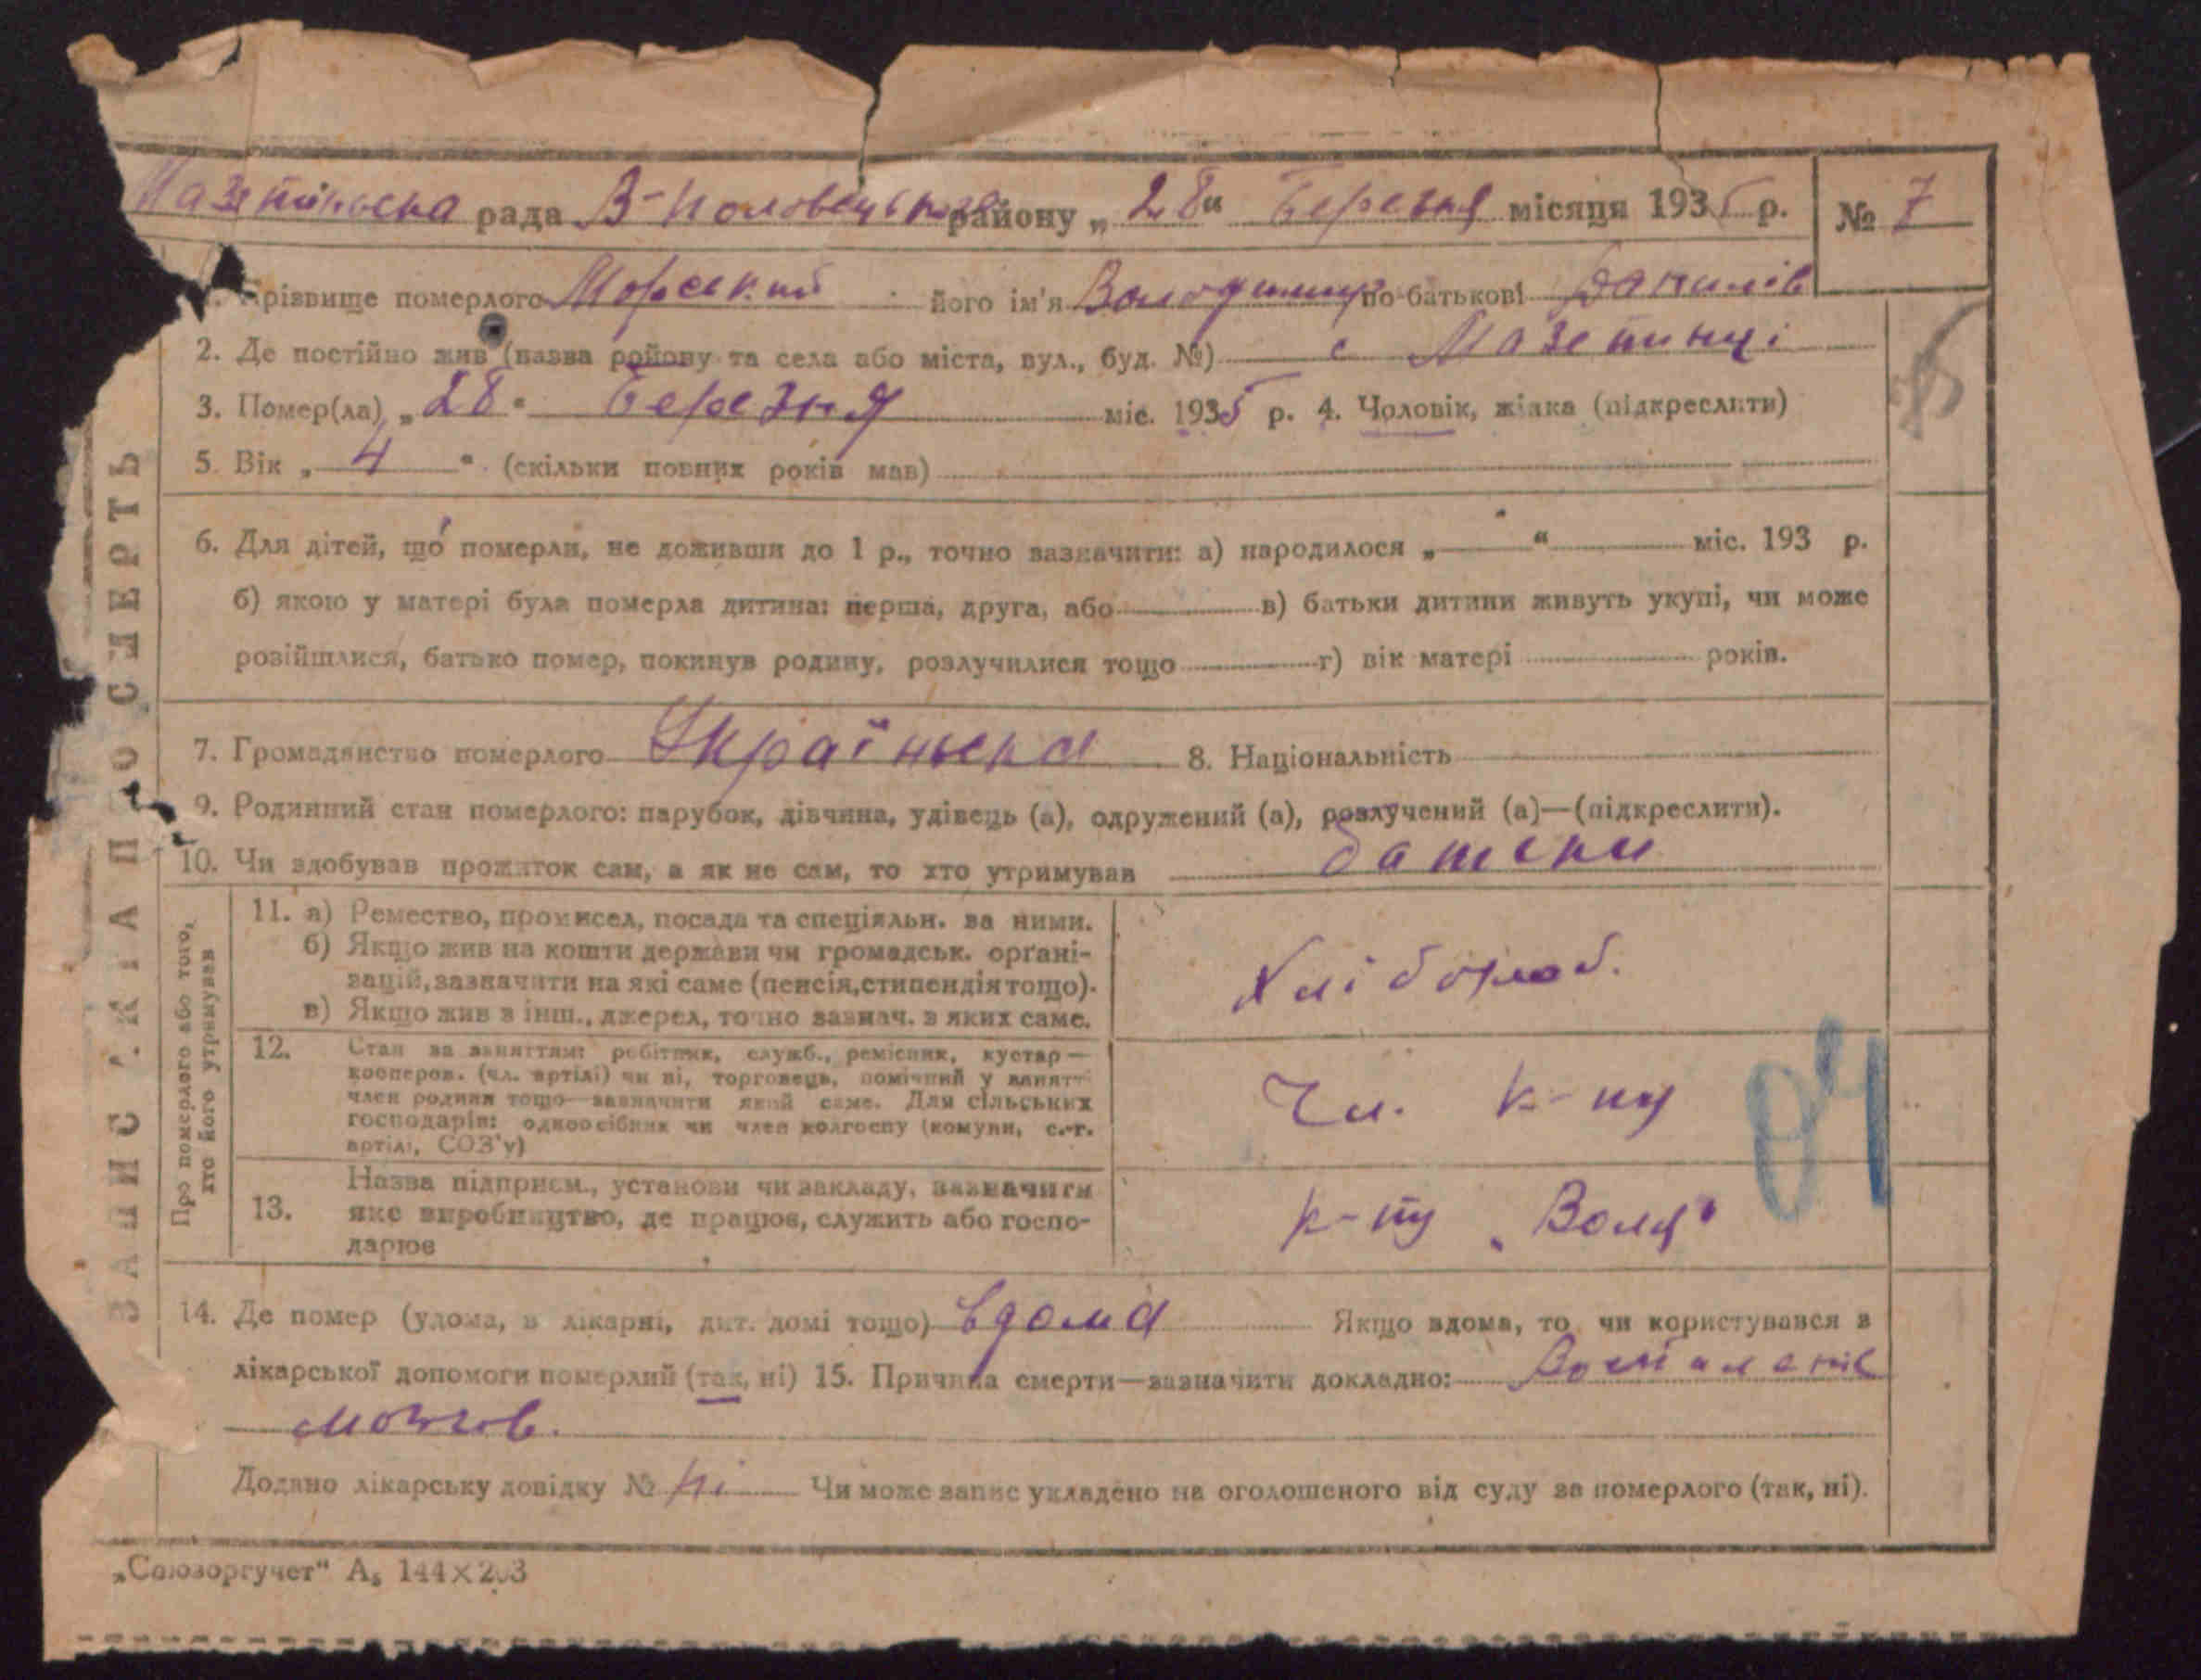 Мазепинська рада В-Половецького району „28“ Березня місяця 1935 р. № 7
Прізвище померлого Морський його ім'я Володимир по-батькові Данилів
2. Де постійно жив (назва району та села або міста, вул., буд. №) с Мазепинці
3. Помер(ла) „28“ Березня міс. 1935 р. 4. Чоловік, жінка (підкреслити)
5. Вік „4“ (скільки повних років мав)
6. Для дітей, що померли, не доживши до 1 р., точно зазначити: а) народилося „ “ міс. 193 р.
б) якою у матері була померла дитина: перша, друга, або в) батьки дитини живуть укупі, чи може
розійшлися, батько помер, покинув родину, розлучилися тощо г) вік матері років.
7. Громадянство померлого Українська 8. Національність
9. Родинний стан померлого: парубок, дівчина, удівець (а), одружений (а), розлучений (а)—(підкреслити).
10. Чи здобував прожиток сам, а як не сам, то хто утримував батьки
ЗАПИС АКТА ПРО СМЕРТЬ
Про померлого або того,
хто його утримував
11. а) Ремество, промисел, посада та спеціяльн. за ними.
б) Якщо жив на кошти держави чи громадськ. орґані-
зацій, зазначити на які саме (пенсія, стипендія тощо).
в) Якщо жив з інш., джерел, точно зазнач. з яких саме.
Хлібороб.
12. Стан за заняттям: робітник, служб., ремісник, кустар—
коопров. (чл. артілі) чи ні, торговець, помічний у занятті
член родини тощо—зазначити який саме. Для сільських
господарів: одноосібник чи член колгоспу (комуни, с.-г.
артілі, СОЗ'у)
Чл. к-пу
04
13. Назва підприєм., установи чи закладу, зазначити
яке виробництво, де працює, служить або госпо-
дарює
к-пу „Воля"
14. Де помер (удома, в лікарні, дит. домі тощо) вдома Якщо вдома, то чи користувався з
лікарської допомоги померлий (так, ні) 15. Причина смерти—зазначити докладно:
мозгов.
Додано лікарську довідку № ні Чи може запис укладено на оголошеного від суду за померлого (так, ні).
„Союзоргучет“ А₅ 144×203